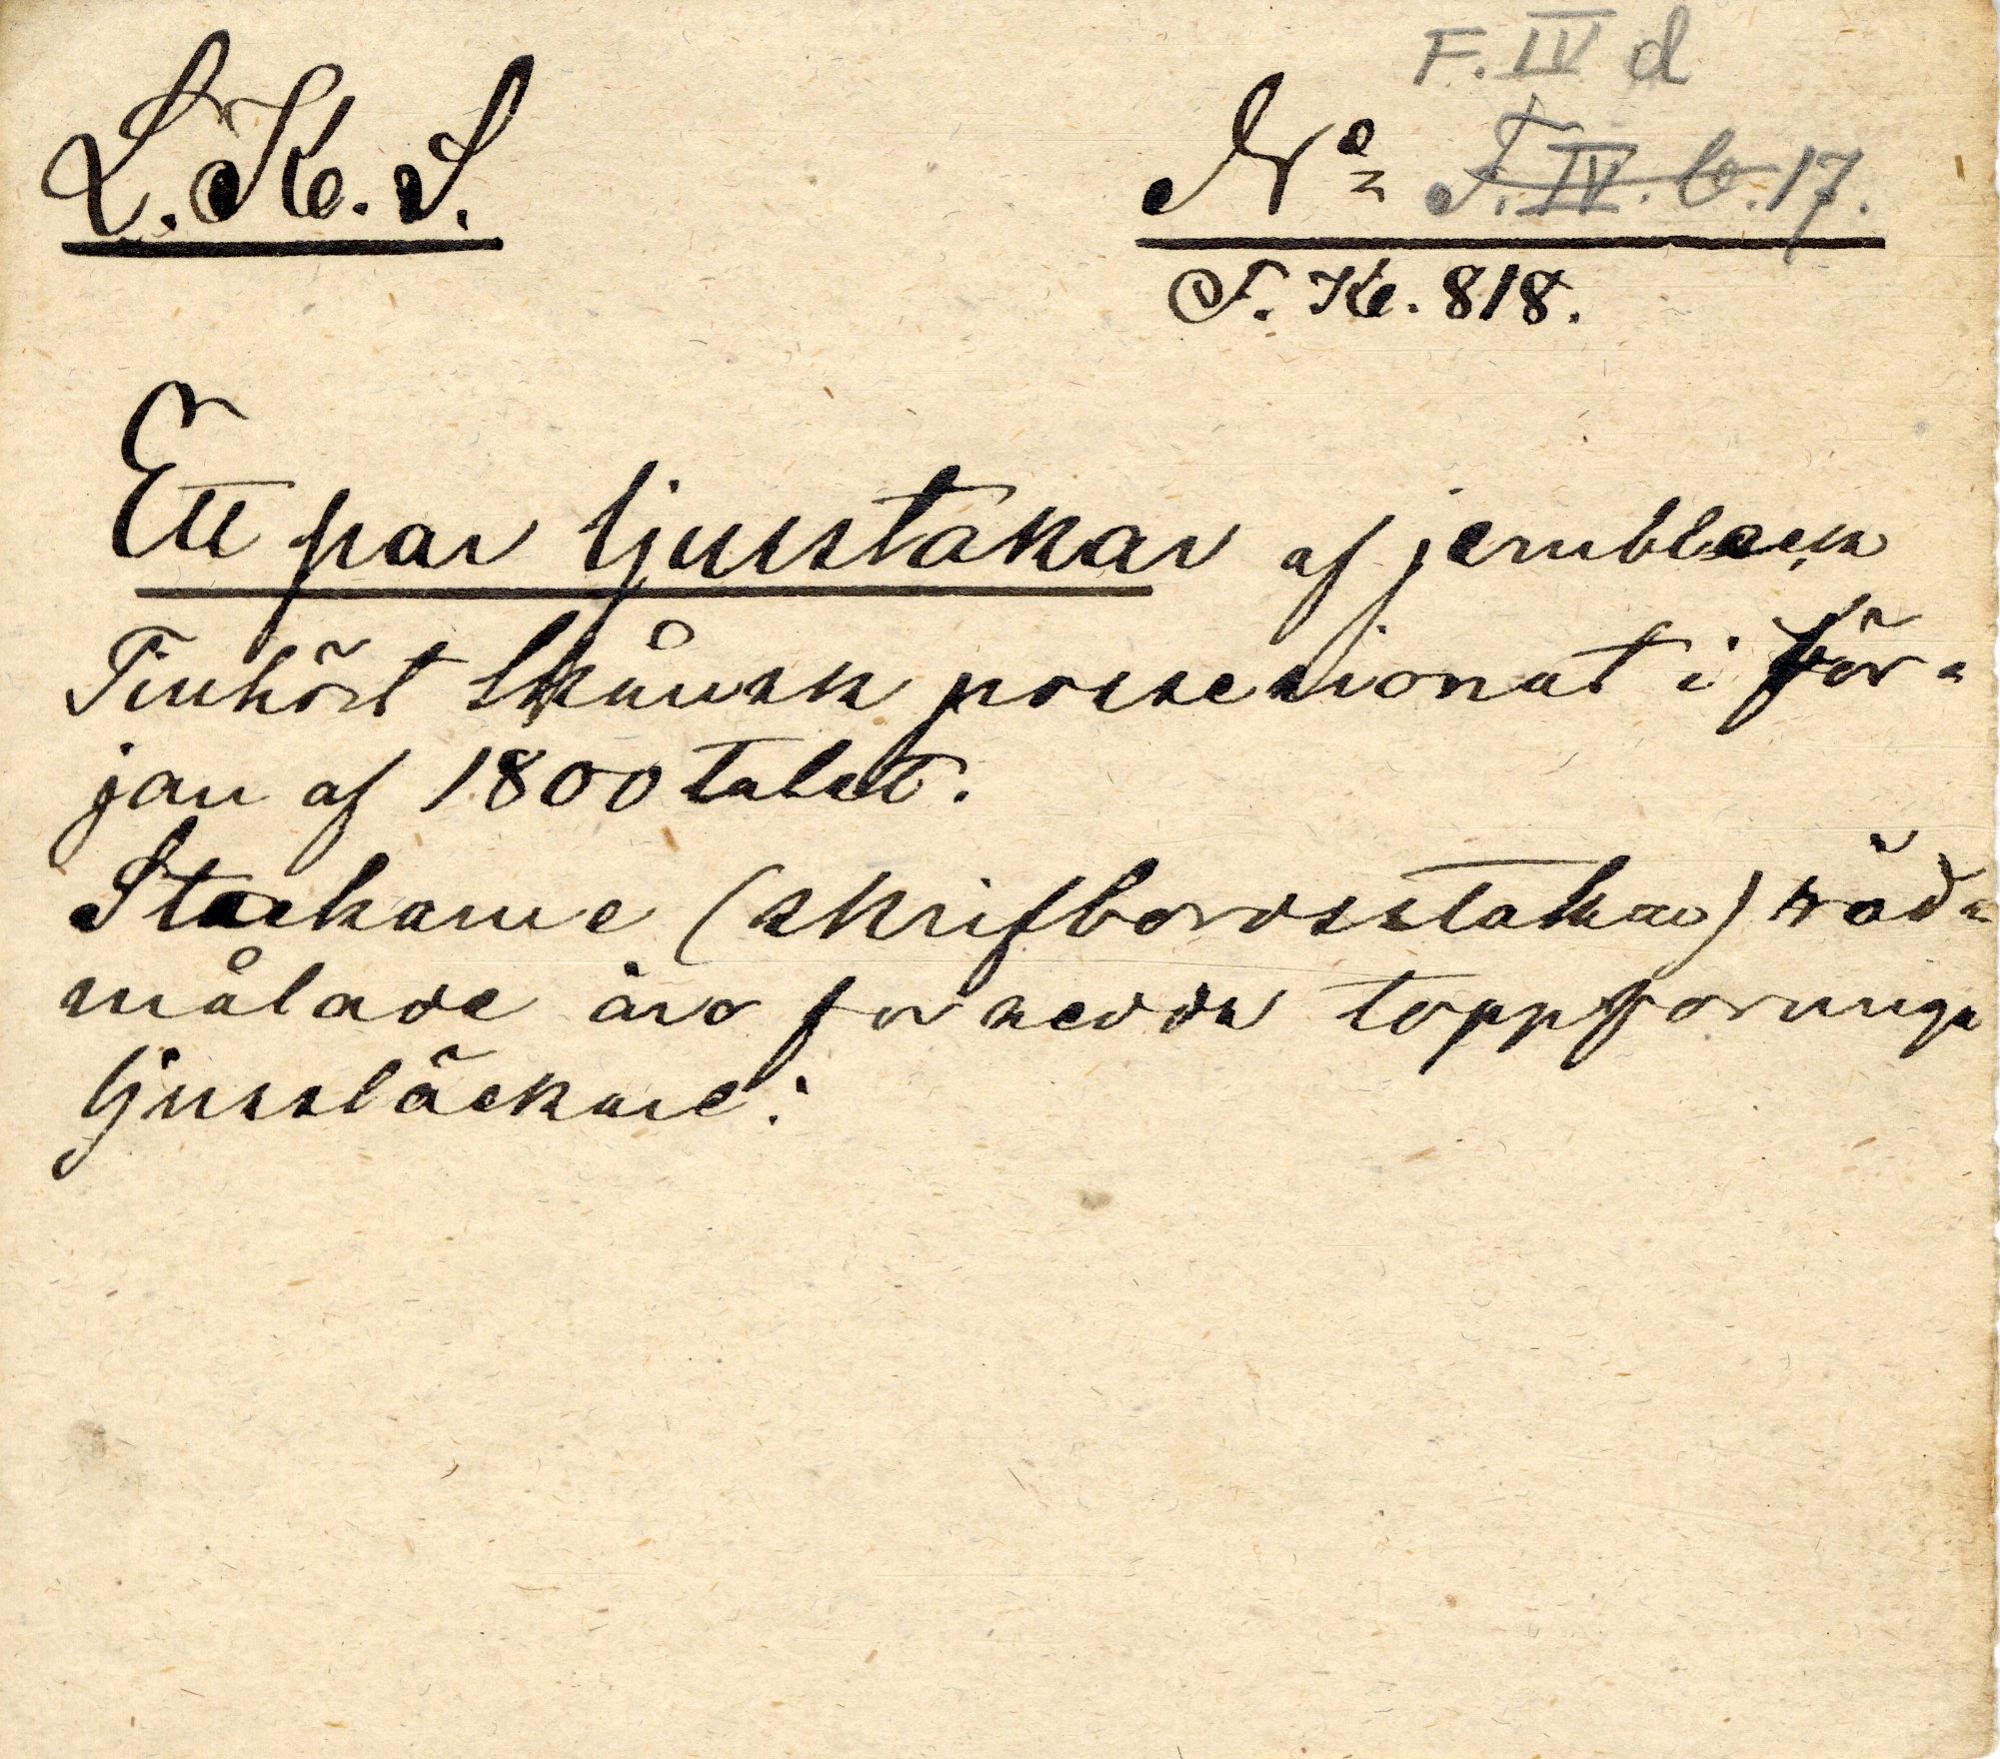 F. IV d
L. K. S. No F. IV. b. 17.
F. K. 818.
Ett par ljusstakar af jernbleck
Tinhört Skånsk possesionat i för-
jan af 1800 talet.
Stackarne (skrifbordsstakar) röd-
målade äro forsedda toppformiga
ljussläckare.